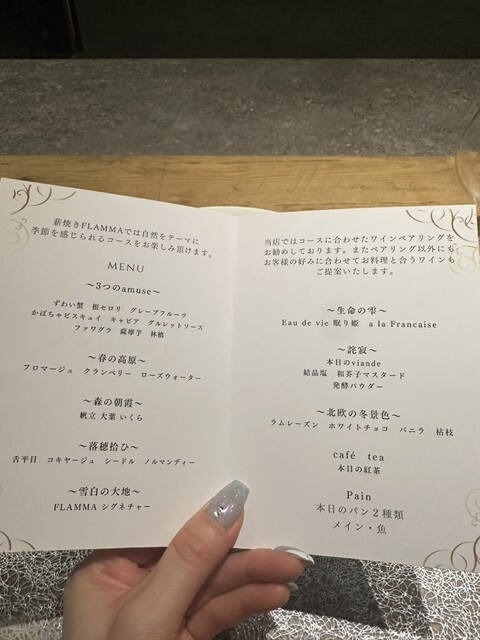 薪焼きFLAMMAでは自然をテーマに
季節を感じられるコースをお楽しみ頂けます。
MENU
～3つのamuse～
ずわい蟹　根セロリ　グレープフルーツ
かぼちゃビスキュイ　キャビア　グルレットソース
ファワグラ　薩摩芋　林檎
～春の高原～
フロマージュ　クランベリー　ローズウォーター
～森の朝霞～
帆立 大葉 いくら
～落穂拾ひ～
舌平目　コキヤージュ　シードル　ノルマンディー
～雪白の大地～
FLAMMA シグネチャー
当店ではコースに合わせたワインペアリングを
お勧めしております。またペアリング以外にも
お客様の好みに合わせてお料理と合うワインも
ご提案いたします。
～生命の雫～
Eau de vie 眠り姫　a la Francaise
～詫寂～
本日のviande
結晶塩　和芥子マスタード
発酵パウダー
～北欧の冬景色～
ラムレーズン　ホワイトチョコ　バニラ　枯枝
café　tea
本日の紅茶
Pain
本日のパン２種類
メイン・魚